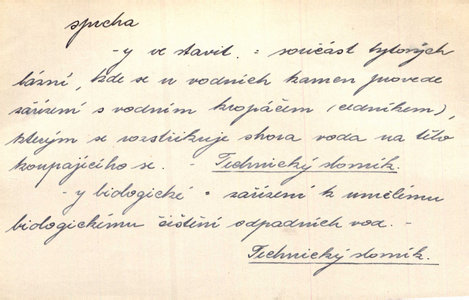 sprcha
-y ve stavit. = součást bytových
lázní, kde se u vodních kamen provede
zařízení s vodním kropáčem (cedníkem),
kterým se rozstřikuje shora voda na tělo
koupajícího se. Technický slovník.
-y biologické = zařízení k umělému
biologickému čištění odpadních vod. -
Technický slovník.